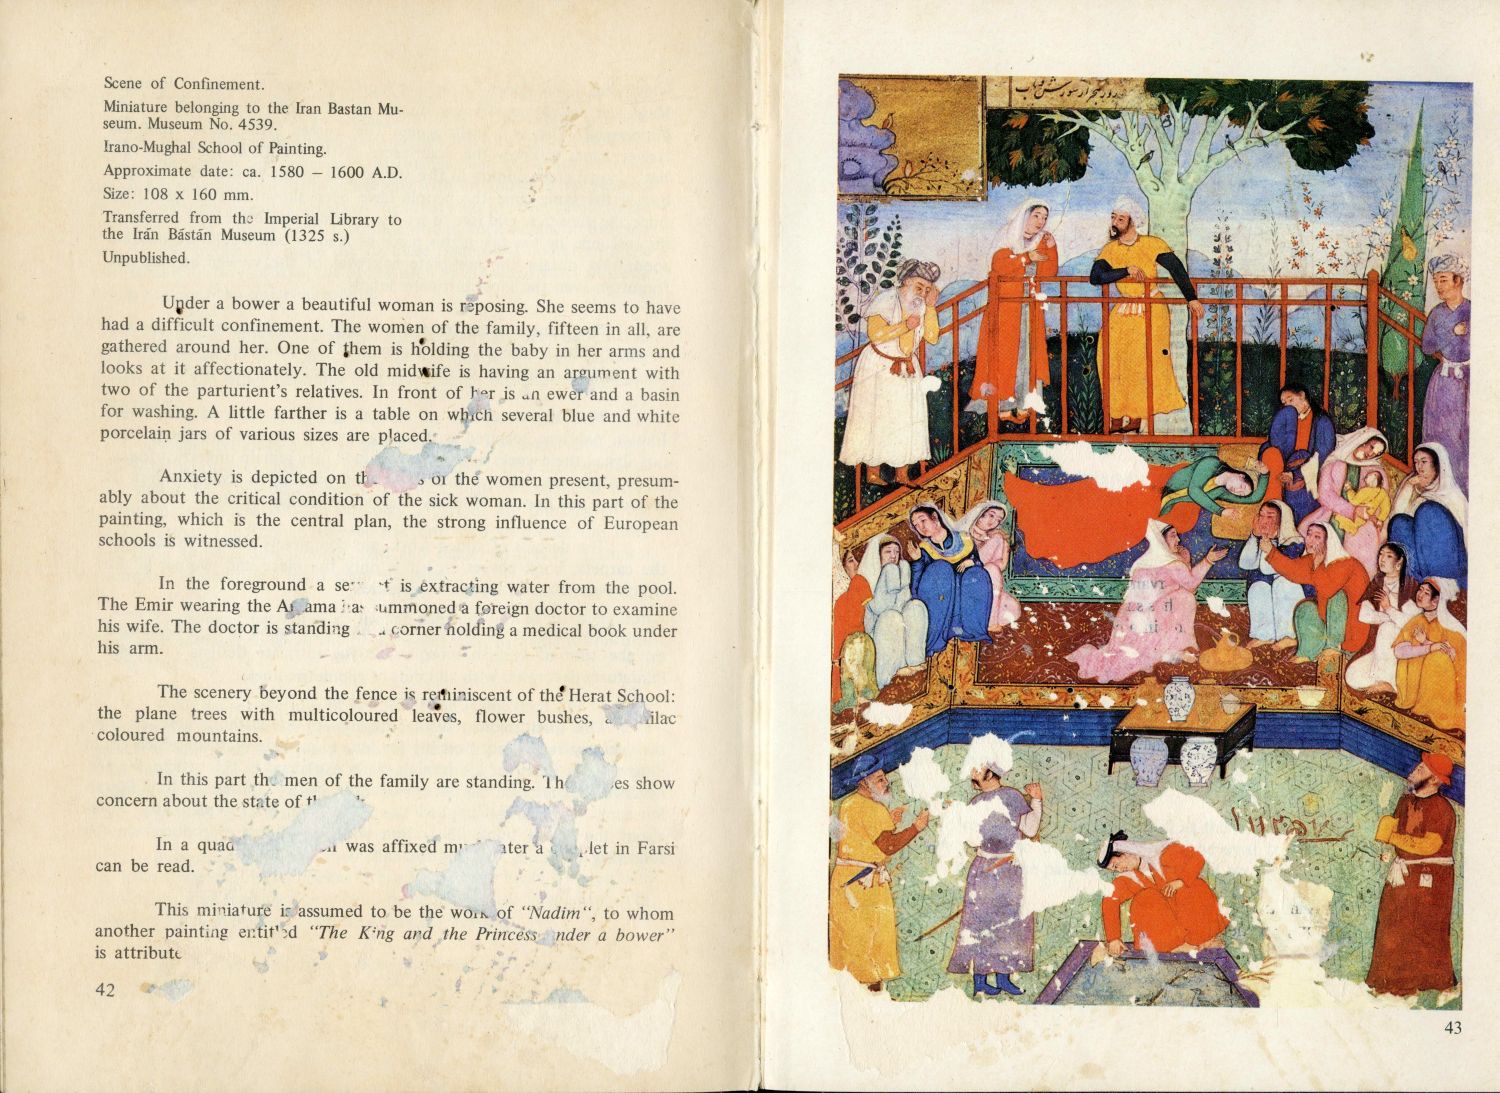 Scene of Confinement.
Miniature belonging to the Iran Bastan Mu-
seum. Museum No. 4539.
Irano-Mughal School of Painting.
Approximate date: ca. 1580 – 1600 A.D.
Size: 108 x 160 mm.
Transferred from the Imperial Library to
the Irán Bástán Museum (1325 s.)
Unpublished.
Under a bower a beautiful woman is reposing. She seems to have
had a difficult confinement. The women of the family, fifteen in all, are
gathered around her. One of them is holding the baby in her arms and
looks at it affectionately. The old midwife is having an argument with
two of the parturient's relatives. In front of her is an ewer and a basin
for washing. A little farther is a table on which several blue and white
porcelain jars of various sizes are placed.
Anxiety is depicted on the of the women present, presum-
ably about the critical condition of the sick woman. In this part of the
painting, which is the central plan, the strong influence of European
schools is witnessed.
In the foreground a is extracting water from the pool.
The Emir wearing the has summoned a foreign doctor to examine
his wife. The doctor is standing corner holding a medical book under
his arm.
The scenery beyond the fence is reminiscent of the Herat School:
the plane trees with multicoloured leaves, flower bushes, lilac
coloured mountains.
In this part the men of the family are standing. show
concern about the state of
In a was affixed a in Farsi
can be read.
This miniature is assumed to be the work of “Nadim“, to whom
another painting entitled “The King and the Princess under a bower”
is
42
43